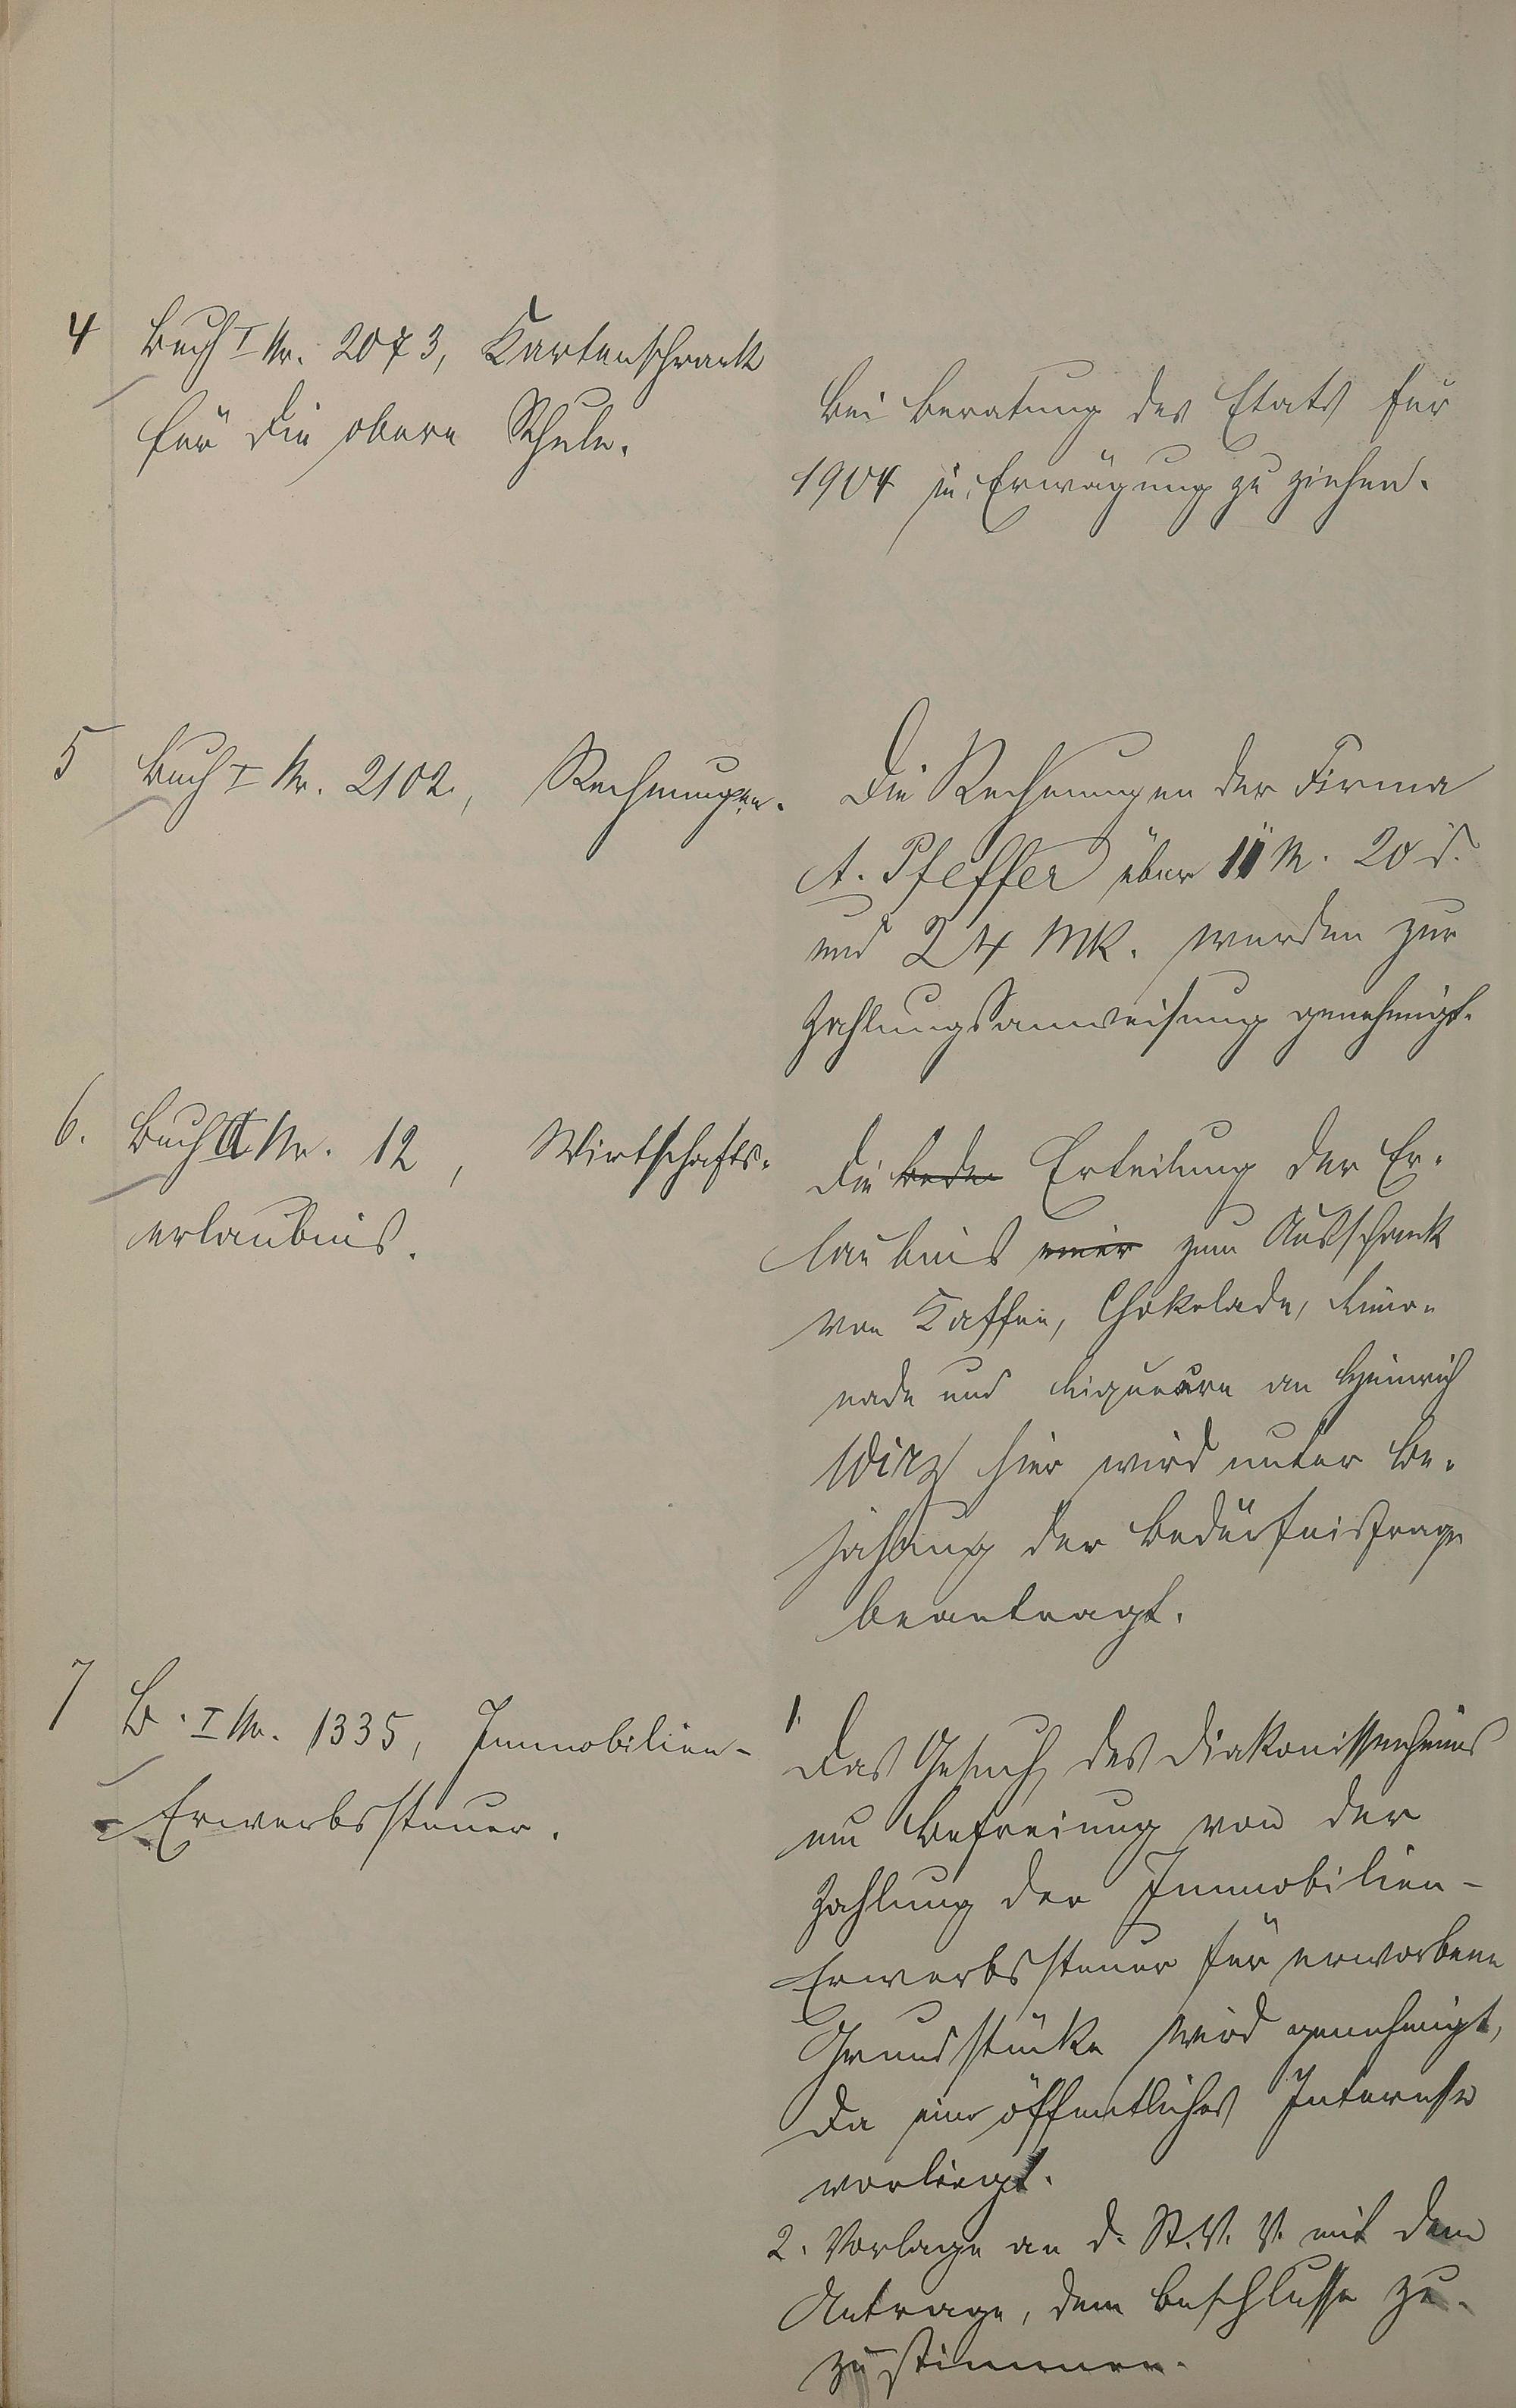 4 Buch I Nr. 2073, Kartenschrank
für die obere Schule.
Bei Beratung des Etats für
1904 in Erwägung zu ziehen.
5 Buch I Nr. 2102, Rechnungen.
Die Rechnungen der Firma
A. Pfeffer über 11 M. 20 d.
und 24 MK. werden zur
Zahlungsanweisung genehmigt.
6. Buch II Nr. 12, Wirtschafts-
erlaubnis.
Die Erteilung der Er-
laubnis einer zum Ausschank
von Kaffee, Chokolade, Limo-
nade und Liqueure an Heinrich
Wirz hier wird unter Be-
jahung der Bedürfnisfrage
beantragt.
7 B. I Nr. 1335, Immobilien-
Erwerbssteuer.
1. Das Gesuch des Diakonissenheims
um Befreiung von der
Zahlung der Immobilien-
Erwerbssteuer für erworbene
Grundstücke wird genehmigt,
da ein öffentliches Interesse
vorliegt.
2. Vorlage an d. St. V. V. mit dem
Antrage, dem Beschlusse zu-
zustimmen.